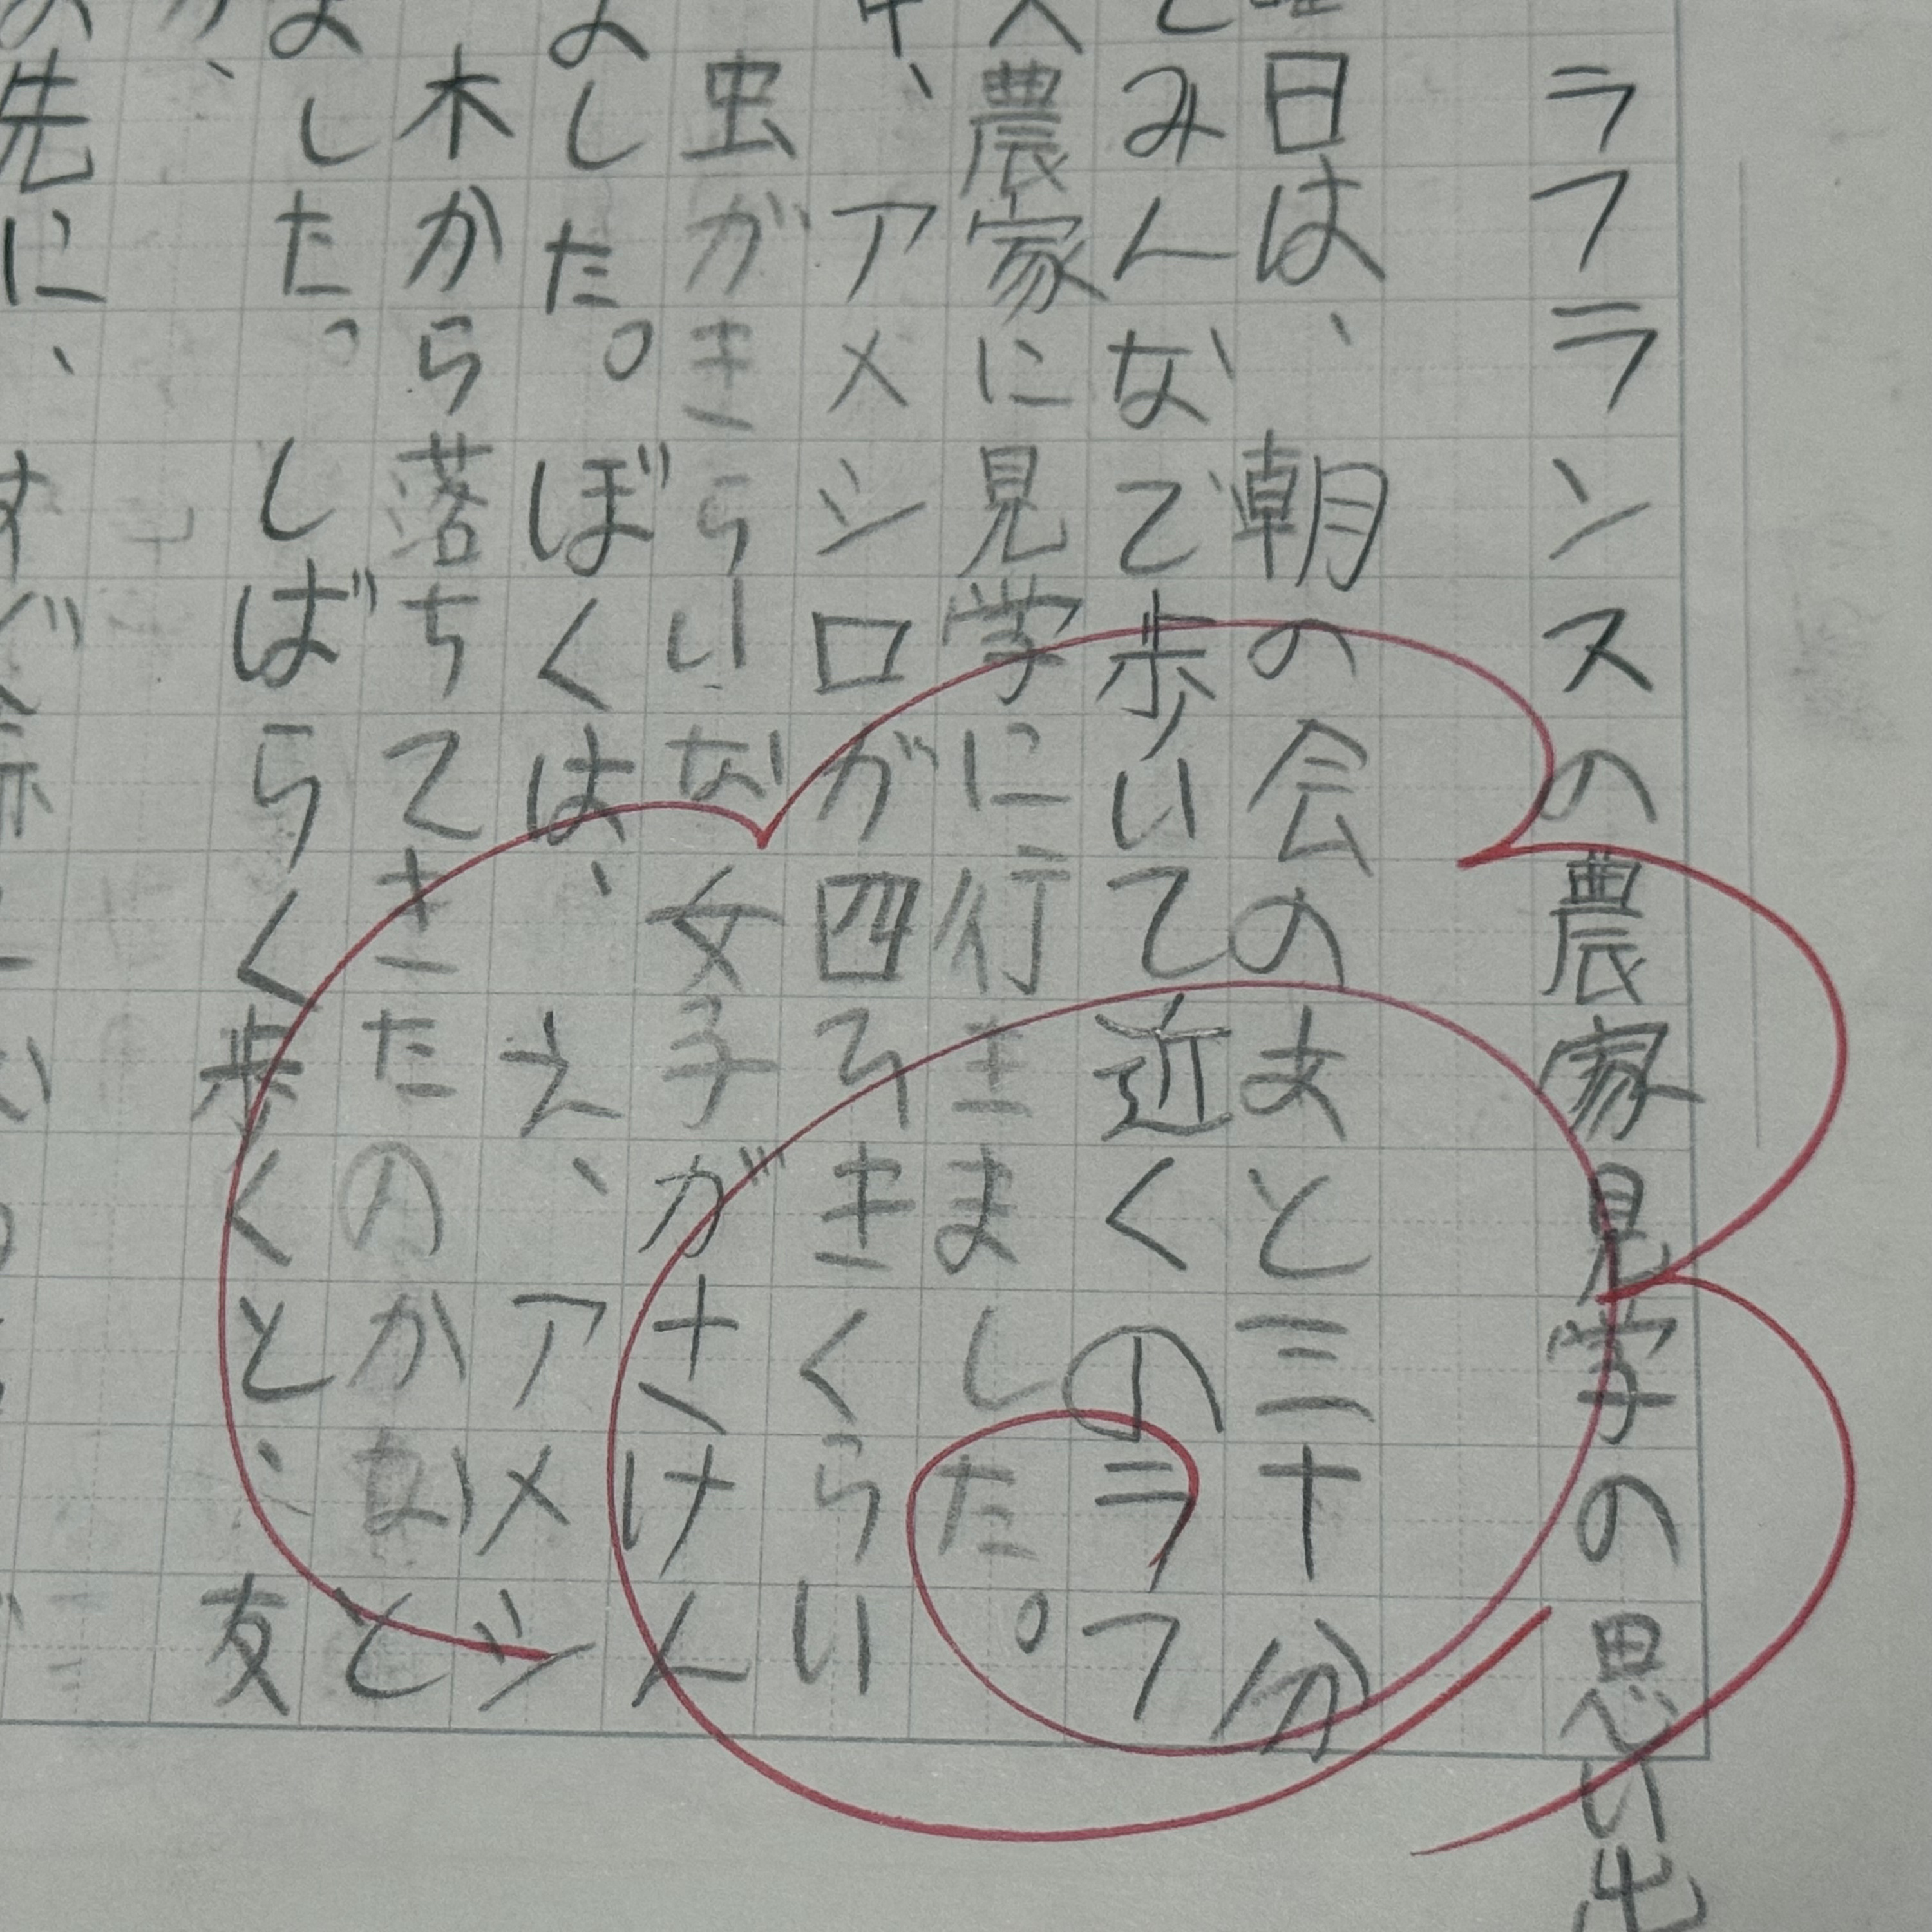 ラフランスの農家見学の思い出
曜日は、朝の会のあと三十分
てみんなで歩いて近くのラフ
農家に見学に行きました。
中、アメシロが四ひきくらい
虫がきらいな女子がさけん
ました。ぼくは、え、アメシ
木から落ちてきたのかなと
ました。しばらく歩くと、友
先に、